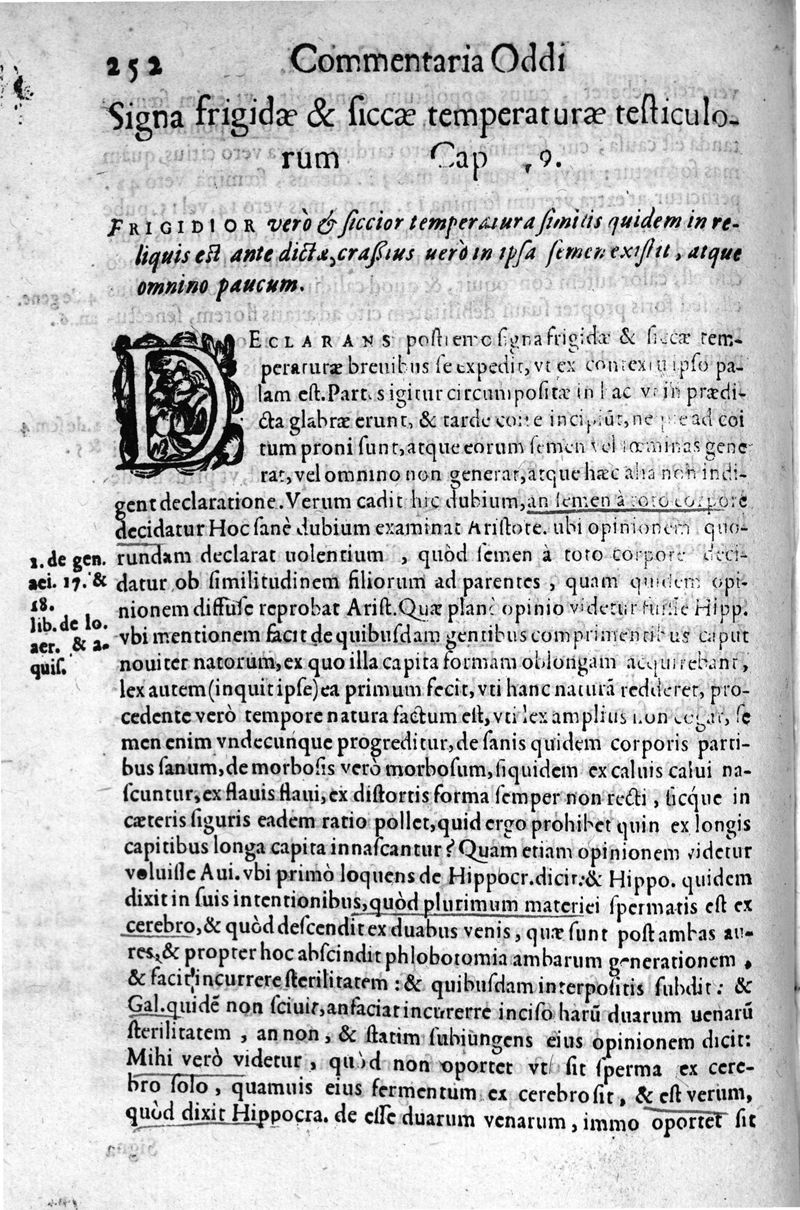 252 Commentaria Oddi
Signa frigidæ & ſiccæ temperaturæ teſticulo-
rum Cap. 79.
FRIGIDIOR verò & ſiccior temperatura ſimilis quidem in re-
liquis eſt ante dictæ, craſſius uerò in ipſa ſemen exiſtit, atque
omnino paucum.
DECLARANS poſtremo ſigna frigidæ & ſiccæ tem-
peraturæ breuibus ſe expedit, vt ex contextu ipſo pa-
lam eſt. Partes igitur circumpoſitæ in hac vt in prædi-
cta glabræ erunt, & tarde coire incipiũt, neque ad coi
tum proni ſunt, atque eorum ſemen vel fœminas gene
rat, vel omnino non generat, atque hæc alia non indi-
gent declaratione. Verum cadit hic dubium, an ſemen à toto corpore
decidatur Hoc ſanè dubium examinat Ariſtote. ubi opinionem quo-
1. de gen.
aei. 17. &
18.
lib. de lo.
aer. & a-
quiſ.
rundam declarat uolentium , quòd ſemen à toto corpore deci-
datur ob ſimilitudinem filiorum ad parentes , quam quidem opi-
nionem diffuſe reprobat Ariſt. Quæ planè opinio videtur fuiſſe Hipp.
vbi mentionem facit de quibuſdam gentibus comprimentibus caput
nouiter natorum, ex quo illa capita formam oblongam acquirebant,
lex autem (inquit ipſe) ea primum fecit, vti hanc naturã redderet, pro-
cedente verò tempore natura factum eſt, vti lex amplius non cogat, ſe
men enim vndecunque progreditur, de ſanis quidem corporis parti-
bus ſanum, de morboſis verò morboſum, ſiquidem ex caluis calui na-
ſcuntur, ex flauis flaui, ex diſtortis forma ſemper non recti , ſicque in
cæteris figuris eadem ratio pollet, quid ergo prohibet quin ex longis
capitibus longa capita innaſcantur? Quam etiam opinionem videtur
voluiſſe Aui. vbi primò loquens de Hippocr. dicit: & Hippo. quidem
dixit in ſuis intentionibus, quòd plurimum materiei ſpermatis eſt ex
cerebro, & quòd deſcendit ex duabus venis, quæ ſunt poſt ambas au-
res, & propter hoc abſcindit phlobotomia ambarum generationem ,
& facit incurrere ſterilitatem : & quibuſdam interpoſitis ſubdit: &
Gal. quidẽ non ſciuit, an faciat incurerre inciſo harũ duarum uenarũ
ſterilitatem , an non, & ſtatim ſubiungens eius opinionem dicit:
Mihi verò videtur , quòd non oportet vt ſit ſperma ex cere-
bro ſolo , quamuis eius fermentum ex cerebro ſit , & eſt verum,
quòd dixit Hippocra. de eſſe duarum venarum, immo oportet ſit